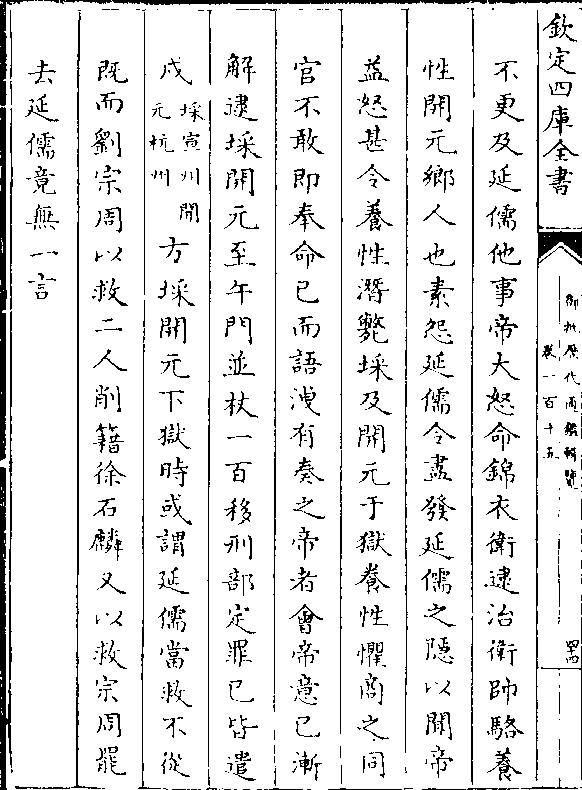 欽定四庫全書
御批歷代通鑑輯覽
卷一百十五
罒
不更及延儒他事帝大怒命錦衣衛逮治衛帥駱養
性開元鄉人也素怨延儒令盡發延儒之隱以聞帝
益怒甚令養性潛斃埰及開元于獄養性懼商之同
官不敢即奉命已而語洩有奏之帝者會帝意已漸
解逮埰開元至午門並杖一百移刑部定罪已皆遣
戍埰宣州開元杭州方埰開元下獄時或謂延儒當救不從
既而劉宗周以救二人削籍徐石麟又以救宗周罷
去延儒竟無一言